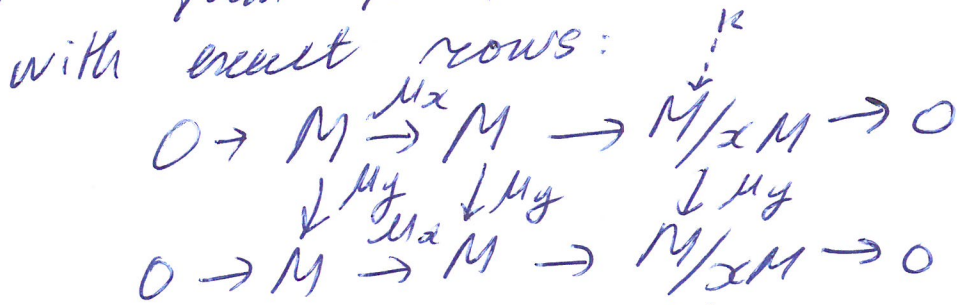 with exact rows:
K
0 → M →μx M → M/xM → 0
↓ μy ↓ μy ↓ μy
0 → M →μx M → M/xM → 0